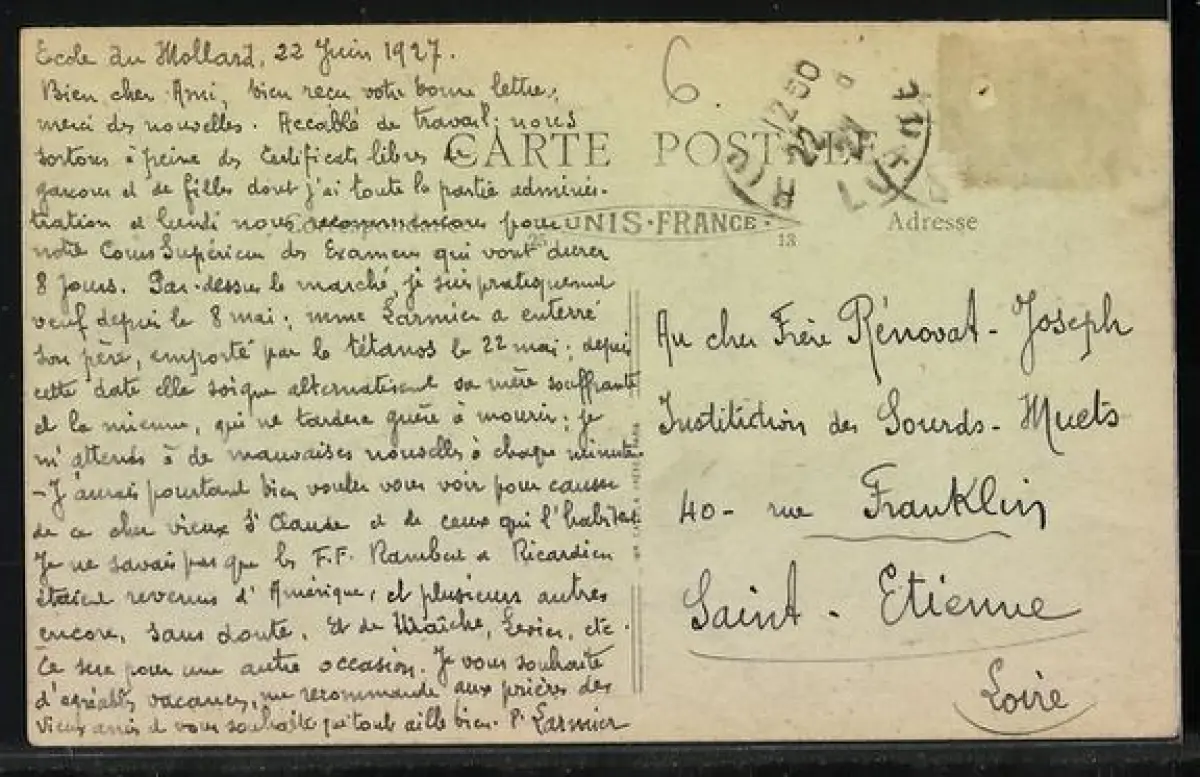 Ecole du Mollard, 22 Juin 1927.
Bien cher Ami, bien reçu votre bonne lettre;
merci des nouvelles. Accablé de travail: nous
sortons à peine des Certificats libres de
garçons et de filles dont j'ai toute la partie adminis-
tration et lundi nous recommencons pour
notre Cours Supérieur des Examens qui vont durer
8 jours. Par-dessus le marché, je suis pratiquement
veuf depuis le 8 mai; mme Larmier a enterré
son père, emporté par le tétanos le 22 mai; depuis
cette date elle soigne alternativement sa mère souffrante
et la mienne, qui ne tardera guère à mourir; je
m'attends à de mauvaises nouvelles à chaque minute.
- J'aurais pourtant bien voulu vous voir pour causer
de ce cher vieux St Claude et de ceux qui l'habitent.
Je ne savais pas que les F.F. Rambert et Ricardien
étaient revenus d'Amérique, et plusieurs autres
encore, sans doute. Et de Maîche, Levier, etc.
Ce sera pour une autre occasion. Je vous souhaite
d'agréables vacances, me recommande aux prières des
vieux amis et vous souhaite que tout aille bien. P. Larmier
6.
CARTE POSTALE
UNIS-FRANCE
25
13
12 50
22
Adresse
Au cher Frère Rénovat-Joseph
Institution des Sourds-Muets
40 - rue Franklin
Saint-Etienne
Loire